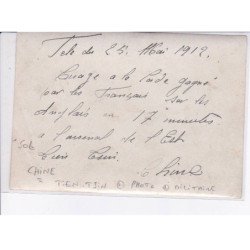 Fete du 25 Mai 1912.
Tirage a la Corde gagné
par les Français sur les
Anglais en 17 minutes
a l'arsenal de l'Est
Tien Tsin
Chine
SOL
CHINE
TIEN-TSIN PHOTO MILITAIRE